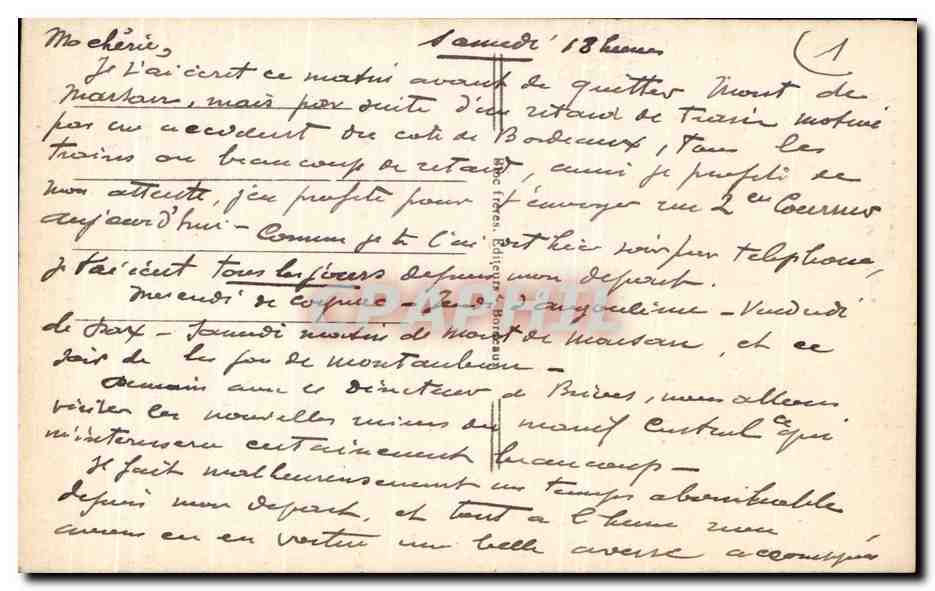 Ma chérie,
Samedi 18 heures
1
Je t'ai écrit ce matin avant de quitter Mont de
Marsan, mais par suite d'un retard de train motivé
par un accident du côté de Bordeaux, tous les
trains ont beaucoup de retard, aussi je profite de
mon attente, j'en profite pour t'envoyer un 2eme Courrier
aujourd'hui - Comme je te l'ai dit hier soir par téléphone,
je t'ai écrit tous les jours depuis mon départ.
Mercredi de Cognac - Jeudi d'angoulême - Vendredi
de Dax - Samedi matin de Mont de Marsan, et ce
soir de la gare de Montauban -
Demain avec le Directeur de Brives, nous allons
visiter les nouvelles mines du massif Central ce qui
m'intéressera certainement beaucoup -
Il fait malheureusement un temps abominable
depuis mon départ, et tout à l'heure nous
avons eu en voiture une belle averse accompagnée
Bloc frères, Editeurs, Bordeaux
CPAPHIL